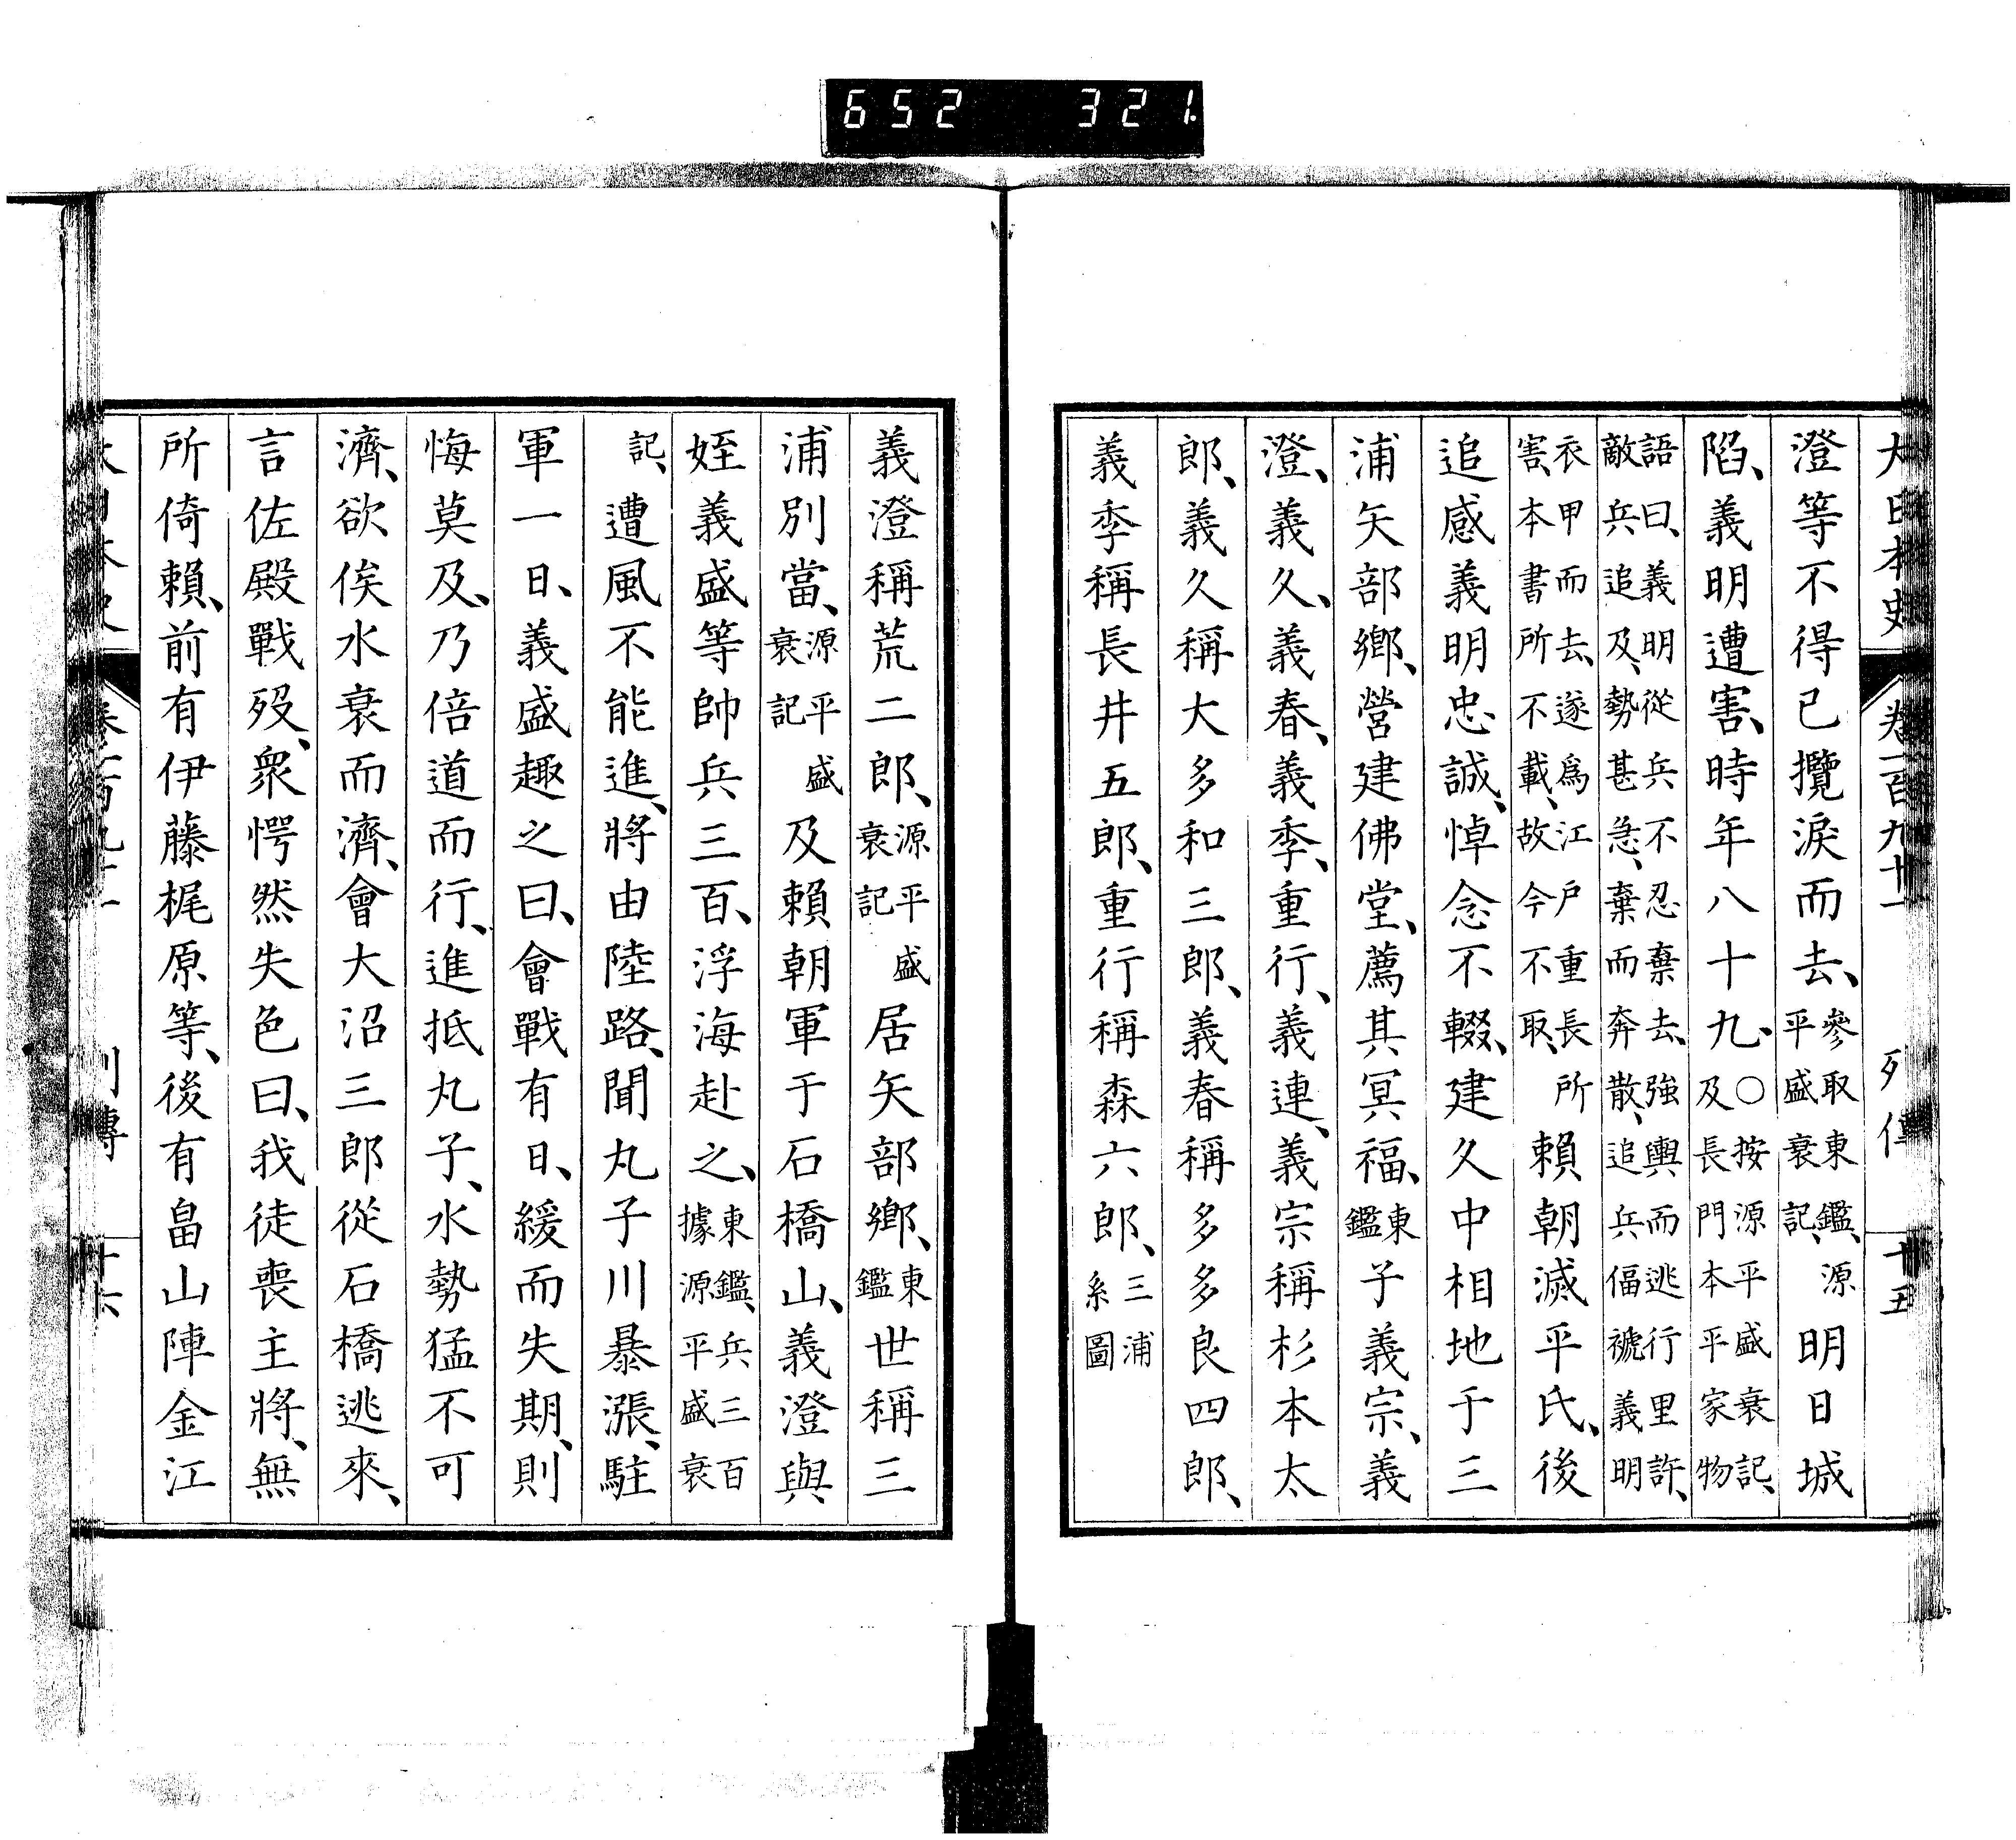 652 321.
大日本史 卷一百九十一 列傳 廿五
澄等不得已攬淚而去、參取東鑑、源平盛衰記、明日城
陷、義明遭害、時年八十九、○按源平盛衰記、及長門本平家物
語曰、義明從兵不忍棄去、強輿而逃行里許、敵兵追及、勢甚急、棄而奔散、追兵偪褫義明
衣甲而去、遂爲江戶重長所害、本書所不載、故今不取、賴朝滅平氏、後
追感義明忠誠、悼念不輟、建久中相地于三
浦矢部鄉、營建佛堂、薦其冥福、東鑑子義宗、義
澄、義久、義春、義季、重行、義連、義宗稱杉本太
郎、義久稱大多和三郎、義春稱多多良四郎、
義季稱長井五郎、重行稱森六郎、三浦系圖
義澄稱荒二郎、源平盛衰記居矢部鄉、東鑑世稱三
浦別當、源平盛衰記及賴朝軍于石橋山、義澄與
姪義盛等帥兵三百、浮海赴之、東鑑、兵三百據源平盛衰
記、遭風不能進、將由陸路、聞丸子川暴漲、駐
軍一日、義盛趣之曰、會戰有日、緩而失期、則
悔莫及、乃倍道而行、進抵丸子、水勢猛不可
濟、欲俟水衰而濟、會大沼三郎從石橋逃來、
言佐殿戰歿、衆愕然失色曰、我徒喪主將、無
所倚賴、前有伊藤梶原等、後有畠山陣金江
列傳